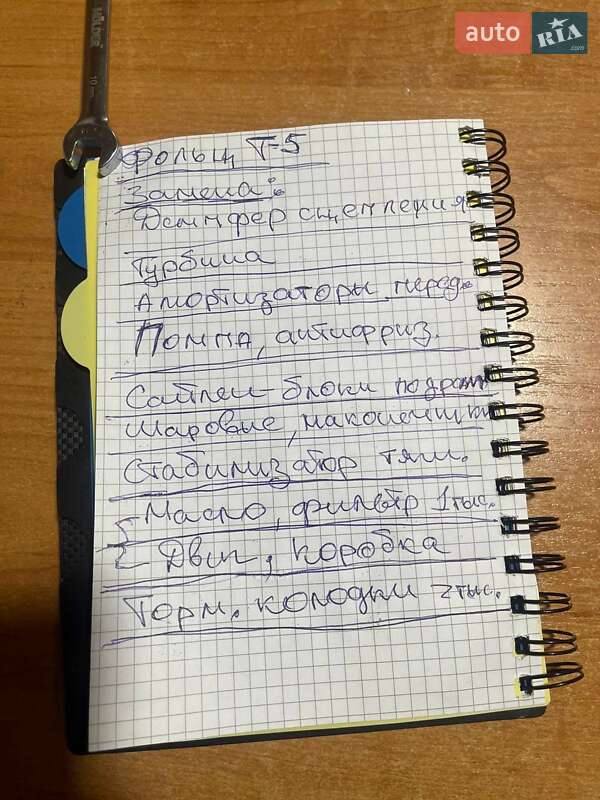 auto RIA.com
HÖLDER
10
Фольц, Т-5
Замена:
Демпфер сцепления
Турбина
Амортизаторы перед.
Помпа, антифриз.
Сайлен-блоки подрамн
Шаровые, наконечники
Стабилизатор тяги.
Масло, фильтр 1тыс.
Двиг, коробка
Торм. колодки 2тыс.